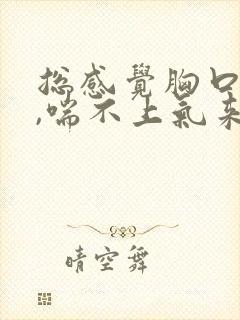 總感覺胸口
,喘不上氣来
晴空舞